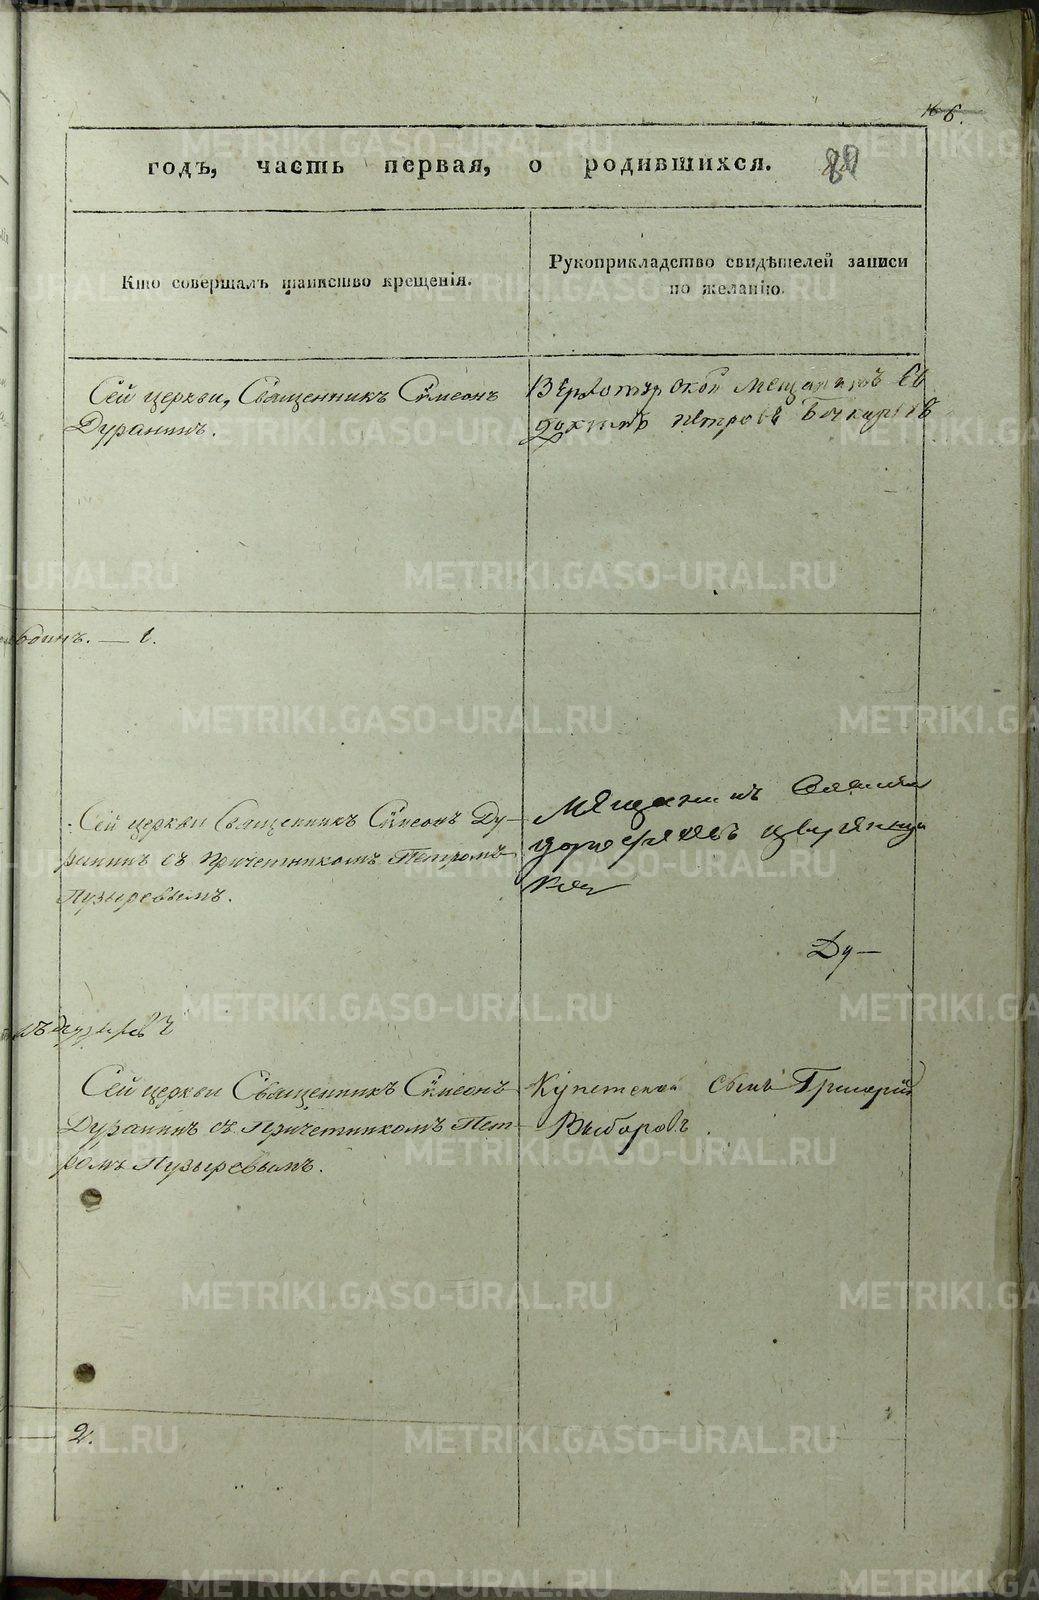 6.
годъ, часть первая, о родившихся.
Кто совершалъ таинство крещенія.
Рукоприкладство свидѣтелей записи
по желанію.
Сей церкви, Священникъ Сѵмеонъ
Дуранинъ.
Верхотурской мещанинъ Ев
докимъ петровъ Бочкаревъ
1.
Сей церкви Священникъ Сѵмеонъ Ду-
ранинъ съ Причетникомъ Петромъ
Пузыревымъ.
Мещанинъ
Ду—
Сей церкви Священникъ Сѵмеонъ
Дуранинъ съ Причетникомъ Пет-
ромъ Пузыревымъ.
Купеческой сынъ Григорий
Выборовъ.
2.
METRIKI.GASO-URAL.RU